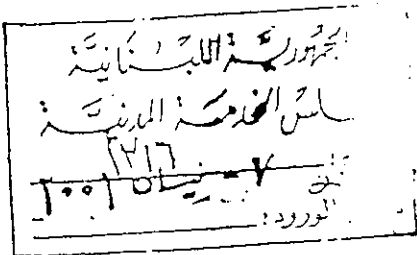 الجمهورية اللبنانية
مجلس الخدمة المدنية
٢٧١٦
٧ - نيسان ٢٠٠١
الورود :